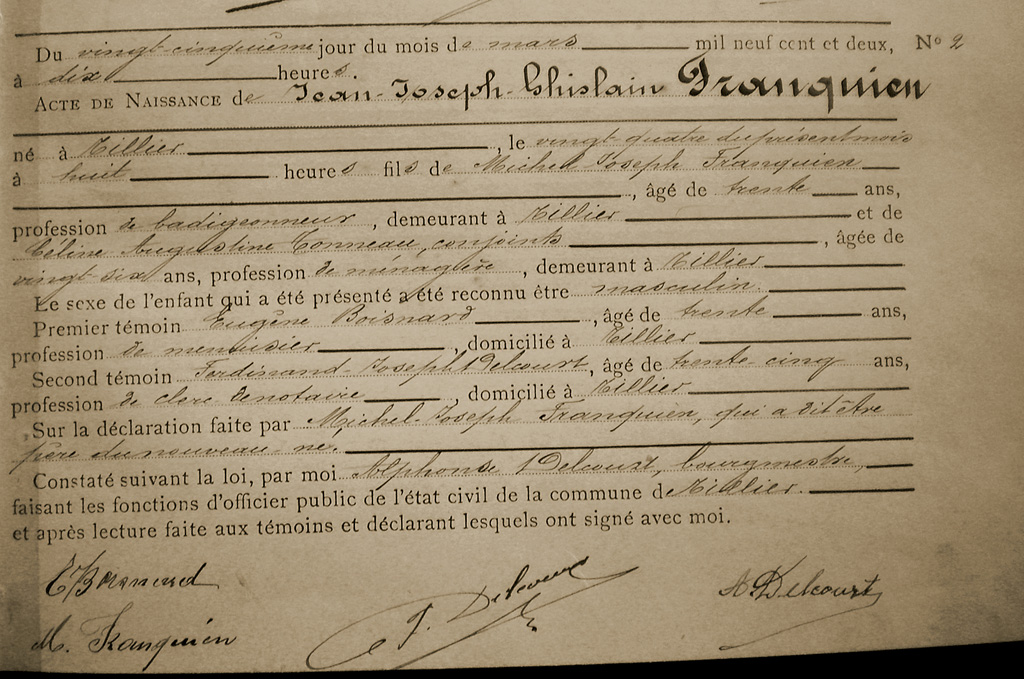 Du vingt-cinquième jour du mois de mars mil neuf cent et deux, No 2
à dix heures.
ACTE DE NAISSANCE de Jean-Joseph-Ghislain Franquien
né à Tillier, le vingt quatre du présent mois
à huit heures fils de Michel Joseph Franquien
, âgé de trente ans,
profession de badigeonneur, demeurant à Tillier et de
Céline Augustine Tonneau, conjoints, âgée de
vingt six ans, profession de ménagère, demeurant à Tillier
Le sexe de l'enfant qui a été présenté a été reconnu être masculin.
Premier témoin Eugène Boisnard, âgé de trente ans,
profession de menuisier, domicilié à Tillier
Second témoin Ferdinand Joseph Delcourt, âgé de trente-cinq ans,
profession de clerc de notaire, domicilié à Tillier
Sur la déclaration faite par Michel-Joseph Franquien, qui a dit être
père du nouveau-né.
Constaté suivant la loi, par moi Alphonse Delcourt, bourgmestre,
faisant les fonctions d'officier public de l'état civil de la commune de Tillier.
et après lecture faite aux témoins et déclarant lesquels ont signé avec moi.
E Boisnard
F. Delcourt
A. Delcourt
M. Franquien